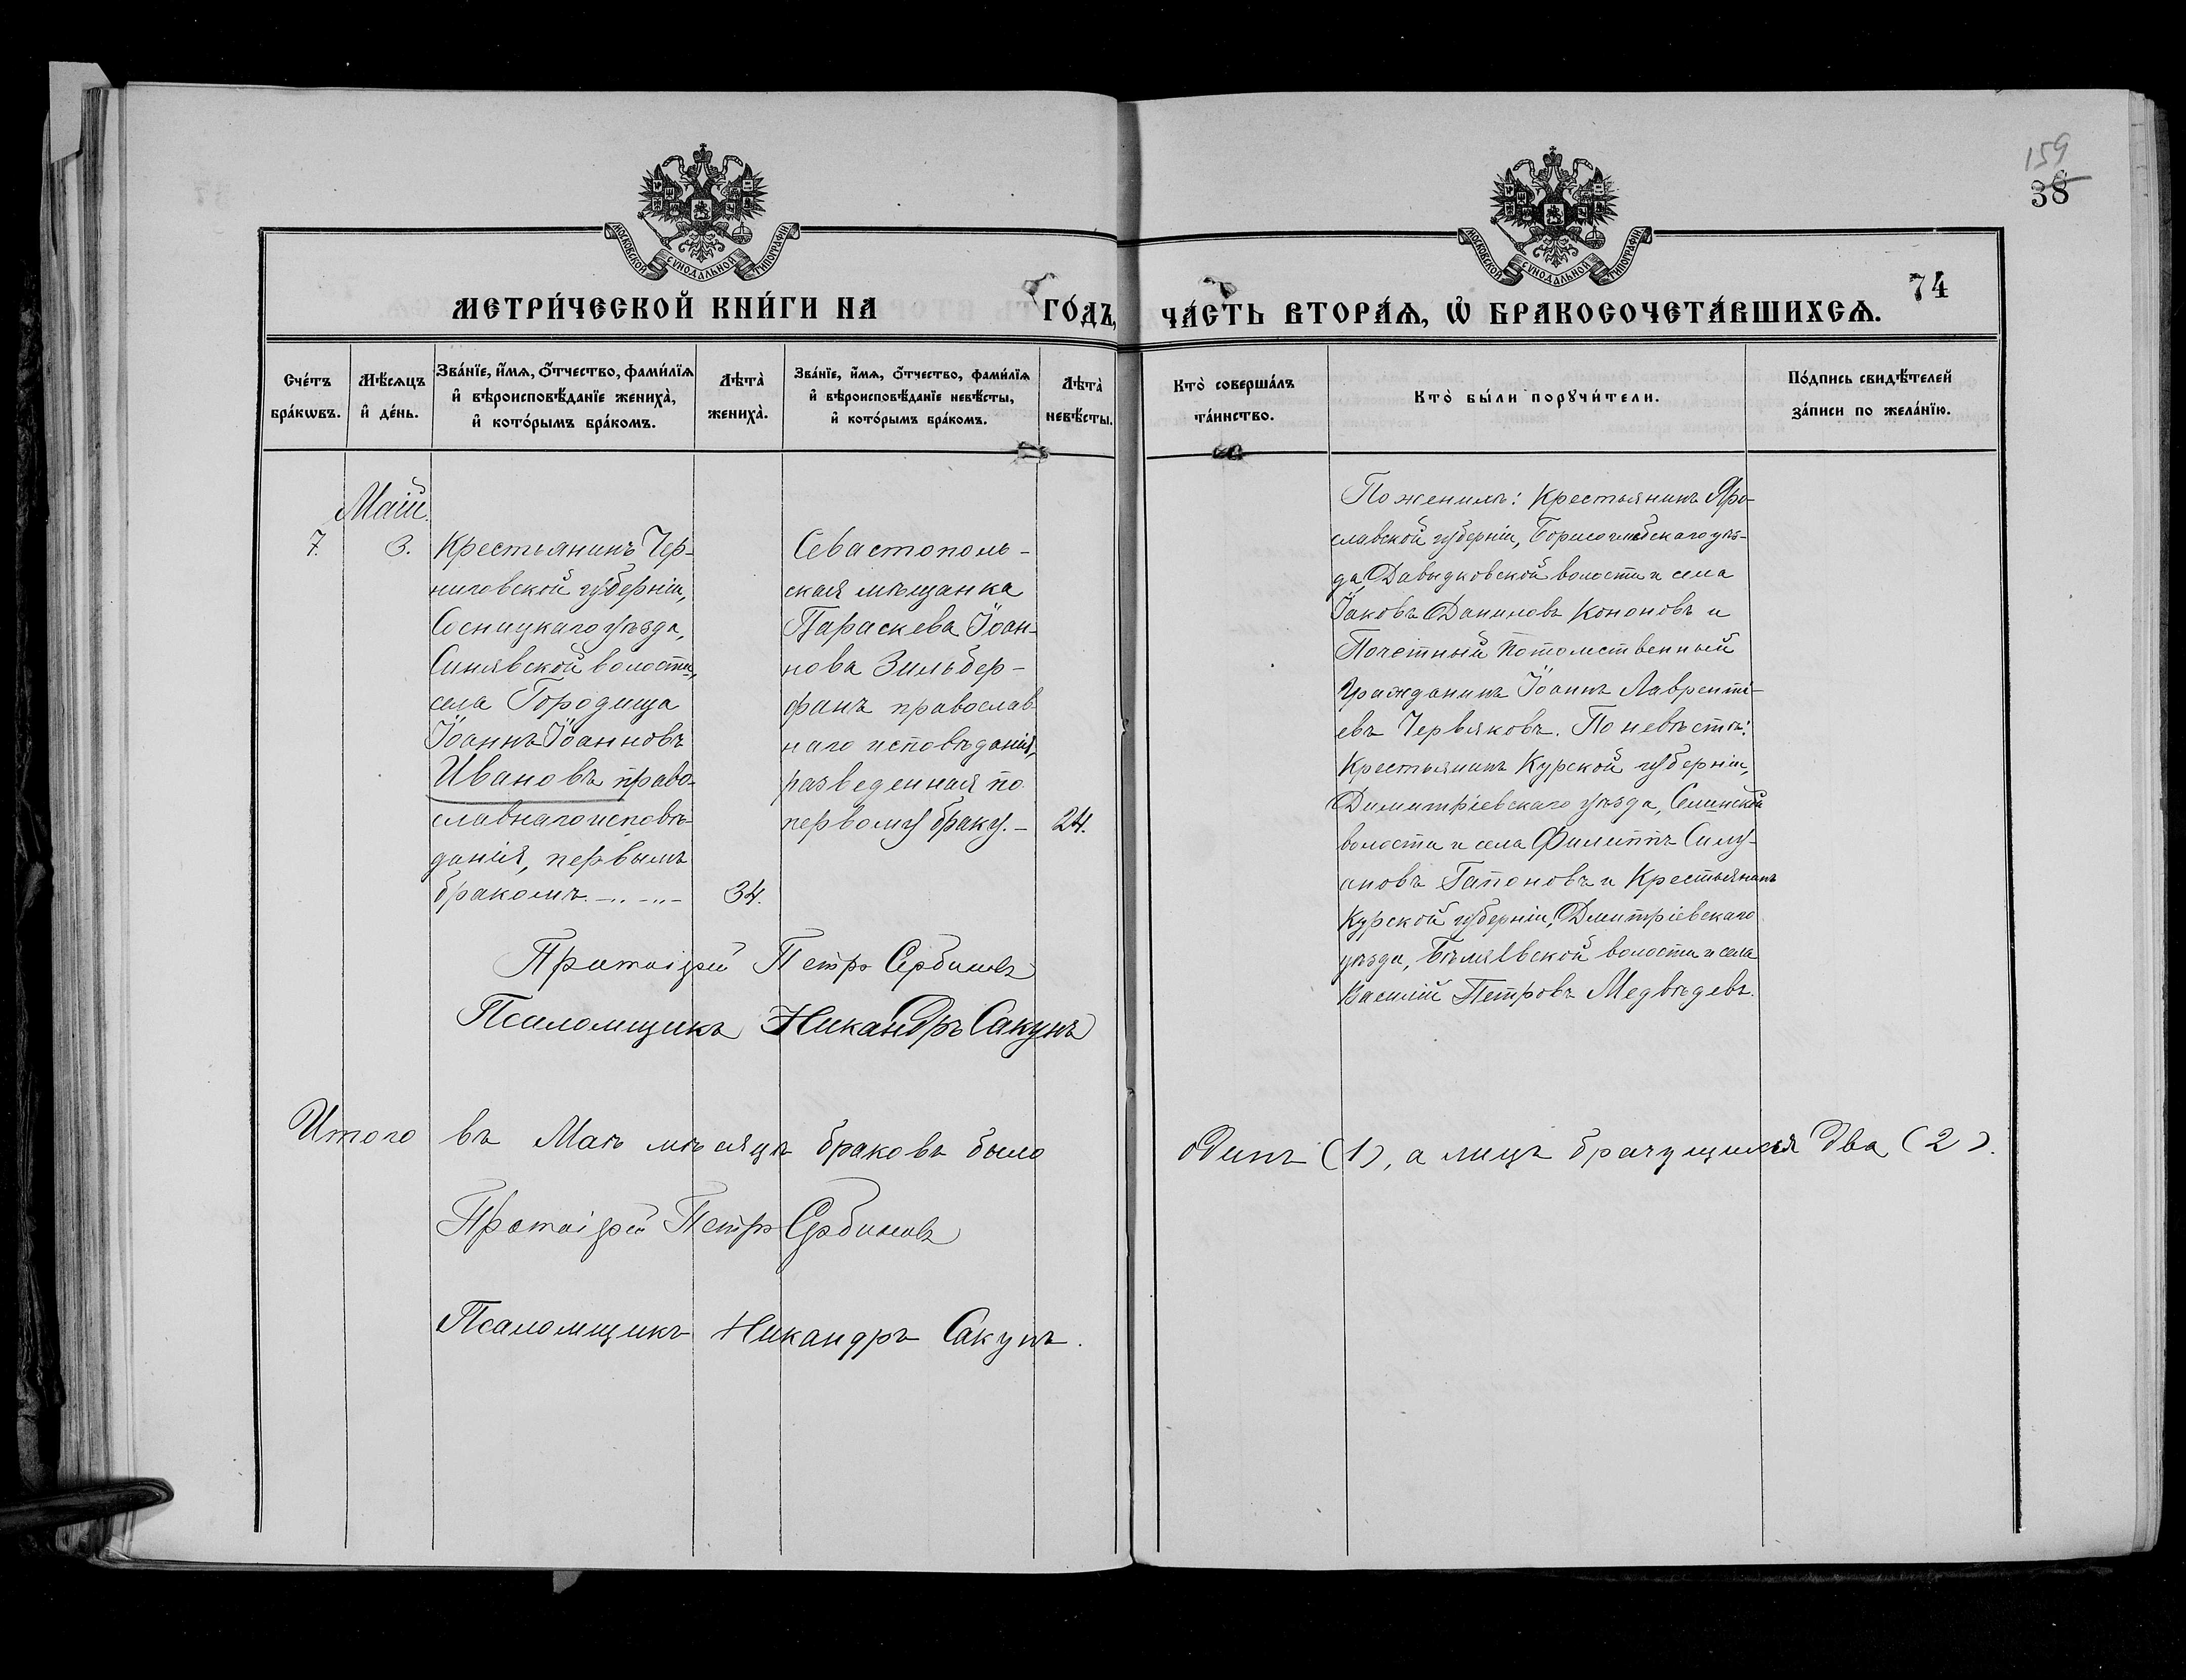 159
38
74
МОСКОВСКОЙ СѴНОДАЛЬНОЙ ТИПОГРАФІИ
МОСКОВСКОЙ СѴНОДАЛЬНОЙ ТИПОГРАФІИ
МЕТРИ́ЧЕСКОЙ КНИ́ГИ НА ГО́ДЪ, ЧА́СТЬ ВТОРА́Ѧ, Ѽ БРАКОСОЧЕТА́ВШИХСѦ.
Сче́тъ
бра́кѡвъ.
Мѣ́сѧцъ
и҆ де́нь.
Зва́нїе, и҆́мѧ, ѻ҆́тчество, фами́лїѧ
и҆ вѣроисповѣ́данїе жениха̀,
и҆ кото́рымъ бра́комъ.
Лѣта̀
жениха̀.
Зва́нїе, и҆́мѧ, ѻ҆́тчество, фами́лїѧ
и҆ вѣроисповѣ́данїе невѣ́сты,
и҆ кото́рымъ бра́комъ.
Лѣта̀
невѣ́сты.
Кто̀ соверша́лъ
та́инство.
Кто̀ бы́ли порꙋчи́тели.
По́дпись свидѣ́телей
за́писи по жела́нїю.
Май.
7. 3.
Крестьянинъ Чер-
ниговской губерніи,
Сосницкаго уѣзда,
Синявской волости,
села Городища
Іоаннъ Іоанновъ
Ивановъ право-
славнаго исповѣ-
данія, первымъ
бракомъ. 34.
Севастополь-
ская мѣщанка
Параскева Іоан-
нова Зильбер-
фанъ православ-
наго исповѣданія,
разведенная по
первому браку. – 24.
По женихѣ: Крестьянинъ Яро-
славской губерніи, Борисоглѣбскаго уѣз-
да, Давыдковской волости и села
Іаковъ Даниловъ Кононовъ и
Почетный потомственный
гражданинъ Іоаннъ Лаврентi-
евъ Червяковъ. По невѣстѣ:
Крестьянинъ Курской губерніи,
Димитріевскаго уѣзда, Селинской
волости и села Филиппъ Силу-
ановъ Гапоновъ и Крестьянинъ
Курской губерніи, Дмитріевскаго
уѣзда, Бѣляевской волости и села
Василій Петровъ Медвѣдевъ.
Протоіерей Петръ Сербиновъ
Псаломщикъ Никандръ Сакунъ
Итого въ Маѣ мѣсяцѣ браковъ было одинъ (1), а лицъ брачущихся два (2).
Протоіерей Петръ Сербиновъ
Псаломщикъ Никандръ Сакунъ.